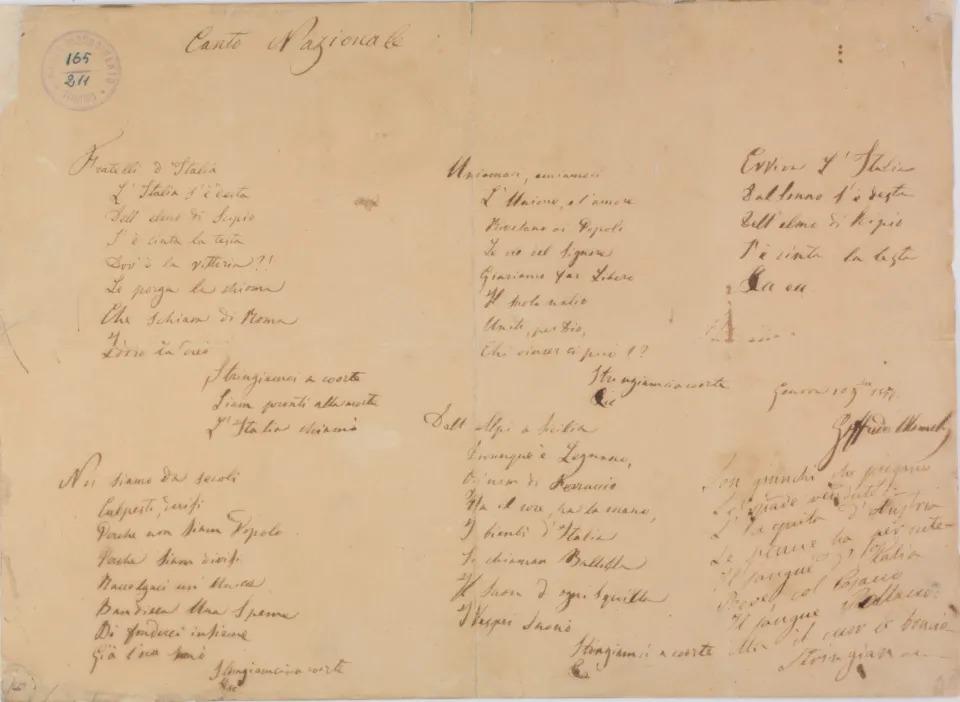 Canto Nazionale
165
211
Fratelli d'Italia
L'Italia s'è desta
Dell'elmo di Scipio
S'è cinta la testa
Dov'è la vittoria?!
Le porga la chioma
Che schiava di Roma
Iddio la creò
Stringiamci a coorte
Siam pronti alla morte
L'Italia chiamò
Noi siamo da secoli
Calpesti, derisi
Perché non siam Popolo
Perché siam divisi
Raccolgaci un'Unica
Bandiera Una Speme
Di fonderci insieme
Già l'ora suonò
Stringiamci a coorte
Uniamoci, amiamoci
L'Unione, e l'amore
Rivelano ai Popoli
Le vie del Signore
Giuriamo far Libero
Il suolo natio
Uniti, per Dio,
Chi vincer ci può!?
Stringiamci a coorte
Dall'Alpi a Sicilia
Dovunque è Legnano,
Ogn'uom di Ferruccio
Ha il core, ha la mano,
I bimbi d'Italia
Si chiaman Balilla
Il Suon d'ogni Squilla
I Vespri Suonò
Stringiamci a coorte
Evviva l'Italia
Dal sonno s'è desta
Dell'elmo di Scipio
S'è cinta la testa
Genova 10
Goffredo Mameli
Son giunchi che piegano
Le spade vendute
L'Aquila d'Austria
Le penne ha perdute
Il sangue d'Italia
Bevé col Cosacco
Il sangue Polacco:
Ma il cuor le brució
Stringiam